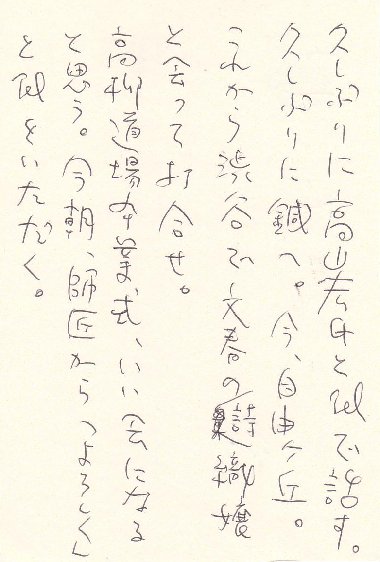 久しぶりに高山君とtelで話す。
久しぶりに鍼へ。今、自由ヶ丘。
これから渋谷で文春の詩織嬢
と会って打合せ。
高柳道場卒業式、いい会になる
と思う。今朝、師匠から「よろしく」
とtelをいただく。